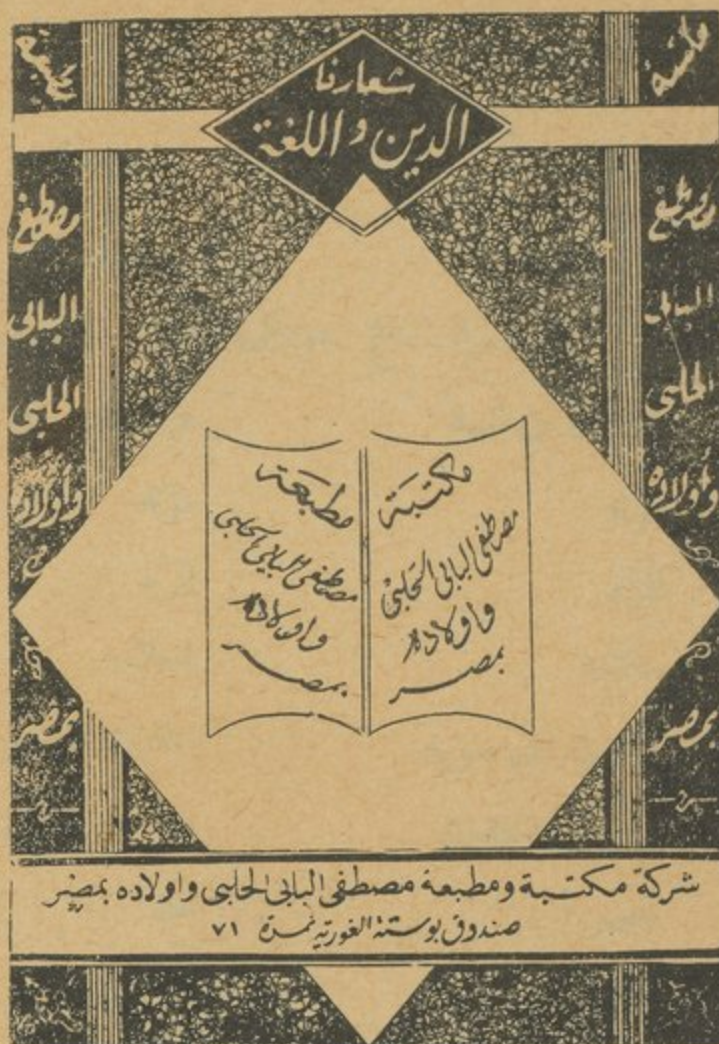 شعارنا
الدين واللغة
مكتبة
مصطفى البابى الحلبى
وأولاده
بمصر
مطبعة
مصطفى البابى الحلبى
واولاده
بمصر
مكتبة
مصطفى
البابى
الحلبى
وأولاده
بمصر
مطبعة
مصطفى
البابى
الحلبى
وأولاده
بمصر
شركة مكتبة ومطبعة مصطفى البابى الحلبى واولاده بمصر
صندوق بوستة الغورية نمرة ٧١